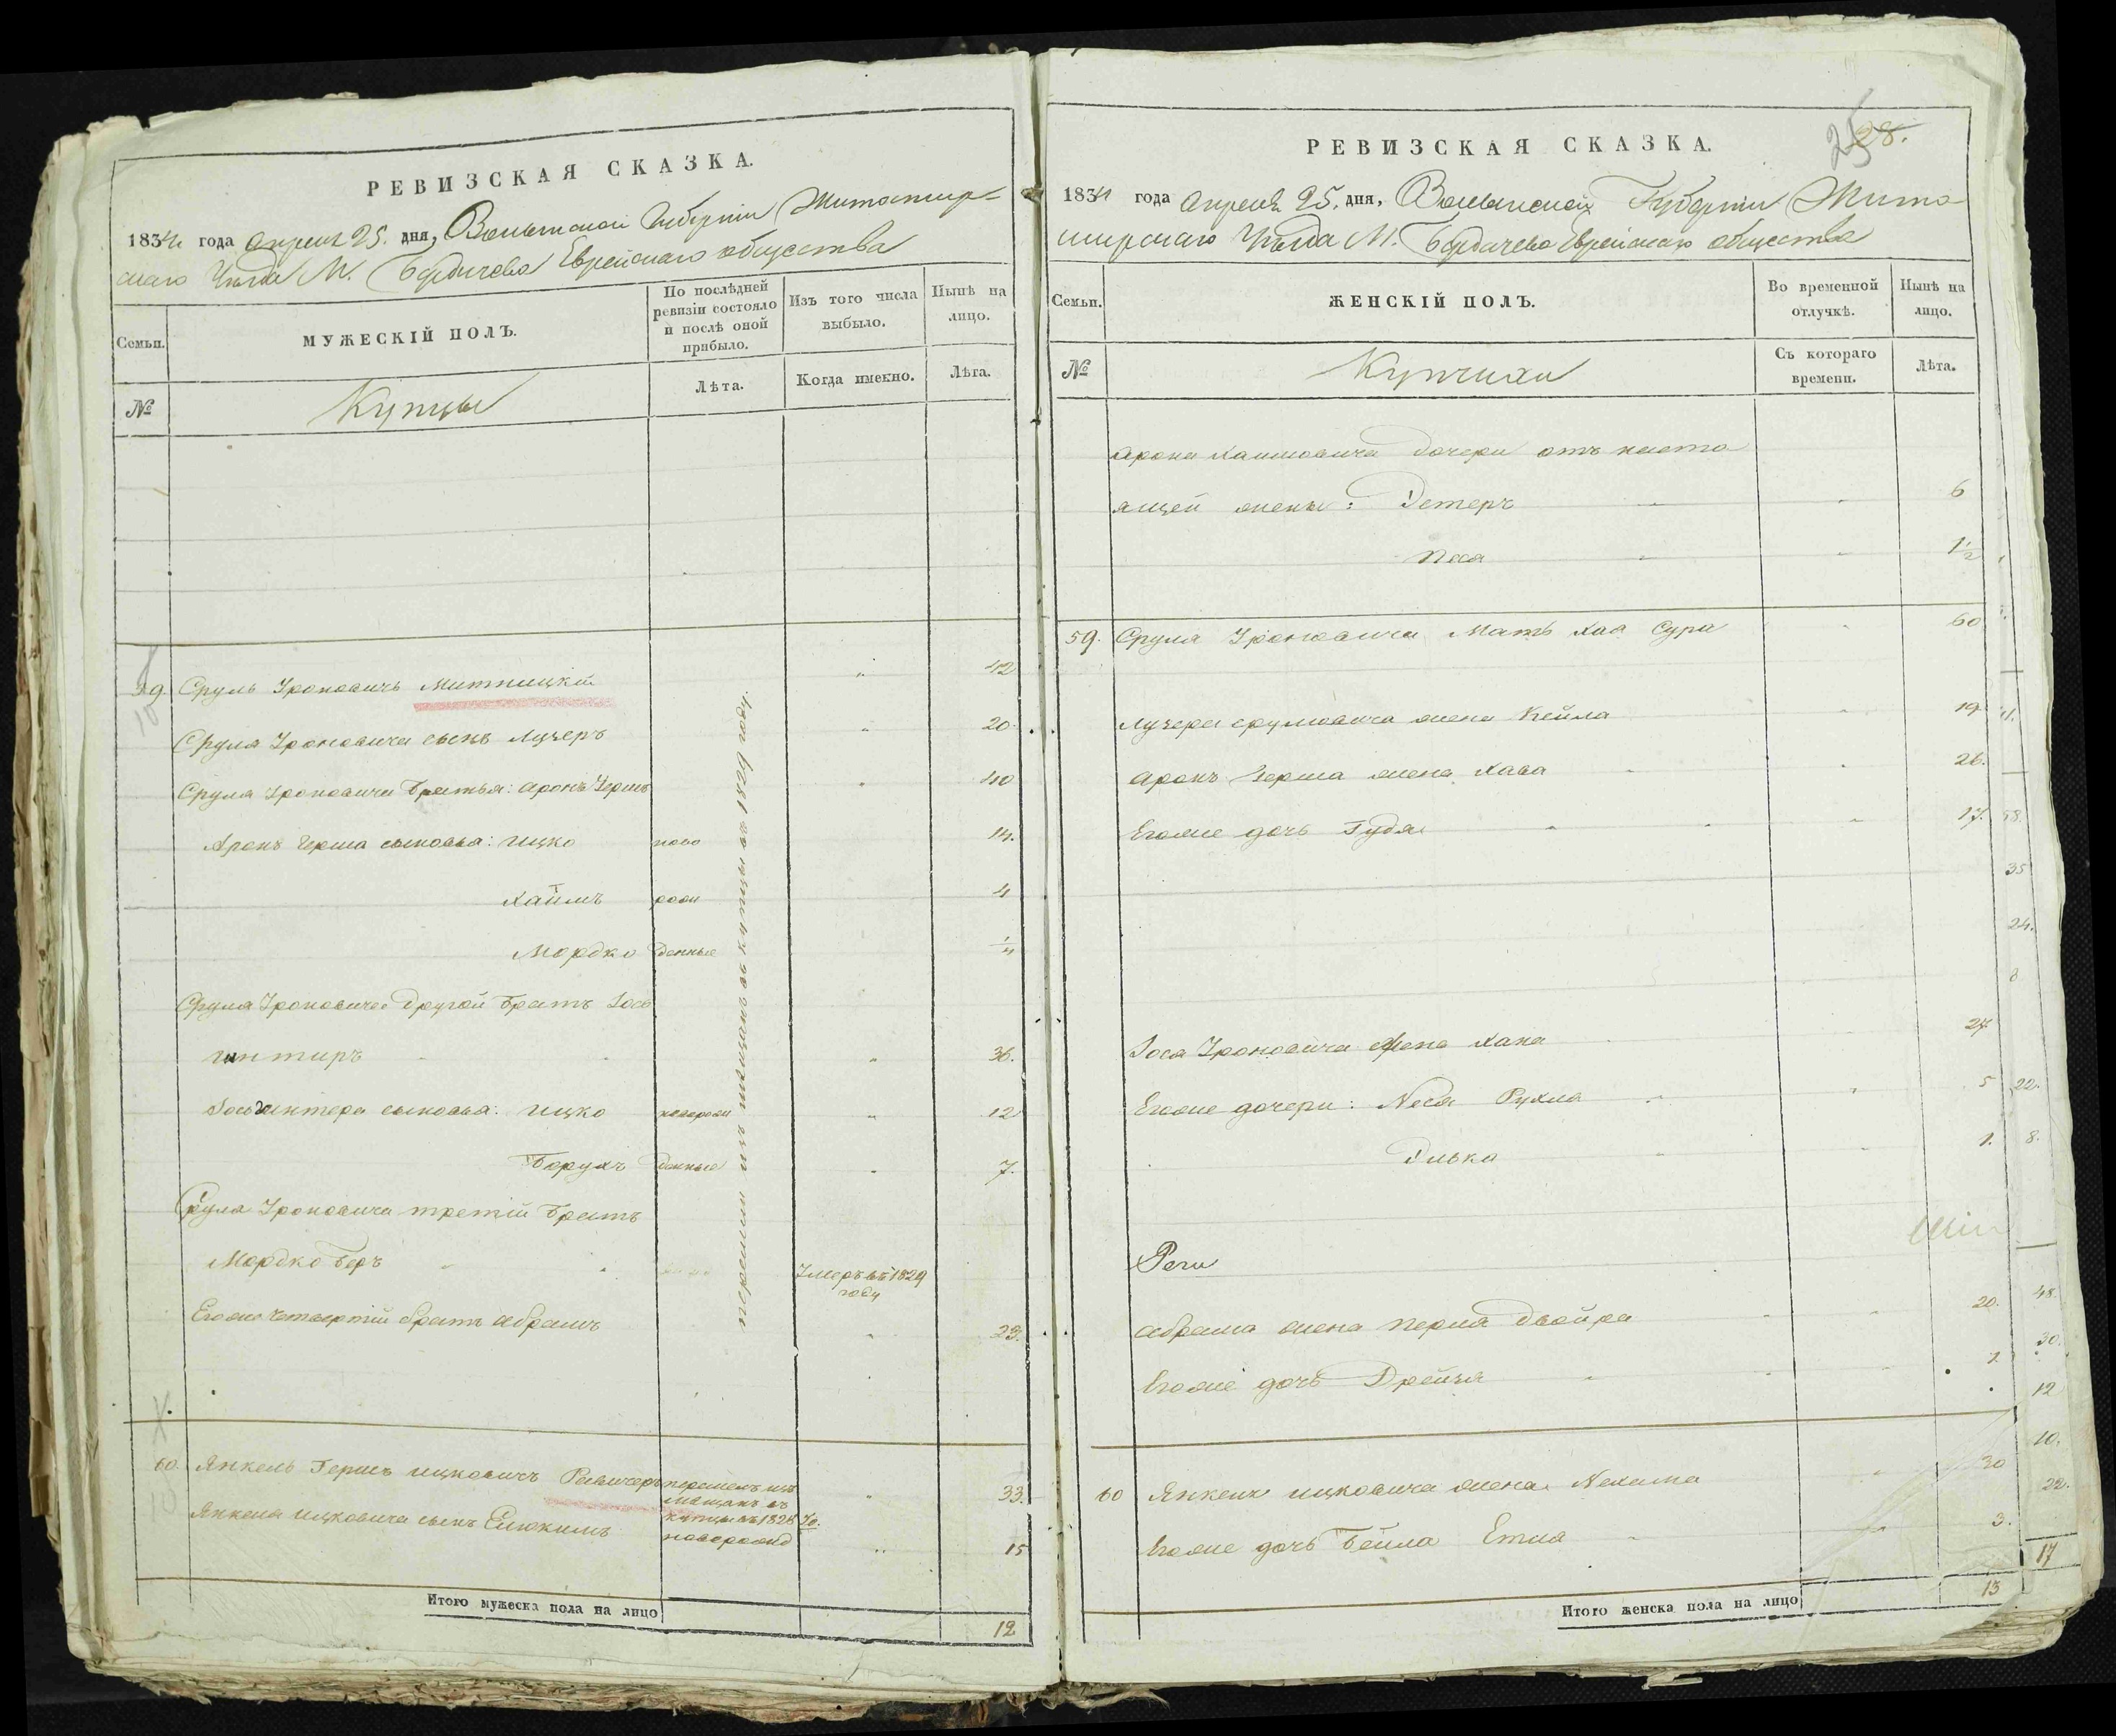 РЕВИЗСКАЯ СКАЗКА.
1834 года Апреля 25. дня, Волынской Губерніи Житомир-
скаго Уѣзда М. Бердичева Еврейскаго общества
Семьи.
МУЖЕСКІЙ ПОЛЪ.
По послѣдней ревизіи состояло и послѣ оной прибыло.
Изъ того числа выбыло.
Нынѣ на лицо.
№
Купцы
Лѣта.
Когда именно.
Лѣта.
59. Сруль Уроновичъ Митницкій " 42
Сруля Уроновича сынъ Лузеръ " 20
Сруля Уроновича Братья: Аронъ Герш " 40
Аронъ Герша сыновья: Ицко ново 14.
Хаймъ рож 4
Мордко денные
Сруля Уроновича другой братъ Іось
36.
сыновья: Ицко новорож " 12
Борухъ денные " 7.
Сруля Уроновича третій братъ
Мордко Беръ Умеръ въ 1829 году
Егоже четвертій братъ Абрамъ " 23.
перешли изъ мещанъ въ купцы въ 1829 году.
60. Янкель Гершъ Ицковичъ перешелъ изъ " 33.
мещанъ въ
купцы въ 1826 Го.
Янкеля Ицковича сынъ новорожд " 15
Итого мужеска пола на лицо 12
РЕВИЗСКАЯ СКАЗКА.
25 28.
1834 года Апреля 25. дня, Волынской Губерніи Жито-
мирскаго Уѣзда М. Бердичева Еврейскаго общества
Семьи.
ЖЕНСКІЙ ПОЛЪ.
Во временной отлучкѣ.
Нынѣ на лицо.
№
Купчихи
Съ котораго времени.
Лѣта.
Арона Хаимовича дочери отъ насто
ящей жены: 6
Песя 1½
59. Сруля Уроновича Мать Хая Сура 60
Лузера Срулевича жена Кейла 19
Аронъ Герша жена Хава 26.
Егоже дочь Гудя 17.
Іося Уроновича жена Хана 27
Егоже дочери: Неся Рухля 5
1.
Абрама жена Перля Двойра 20.
Егоже дочь Дрейзя
60 Янкеля Ицковича жена Нехама 30
Егоже дочь Бейла Етля 3.
Итого женска пола на лицо 13
35
24.
22.
8.
48.
30.
12
10.
22.
17